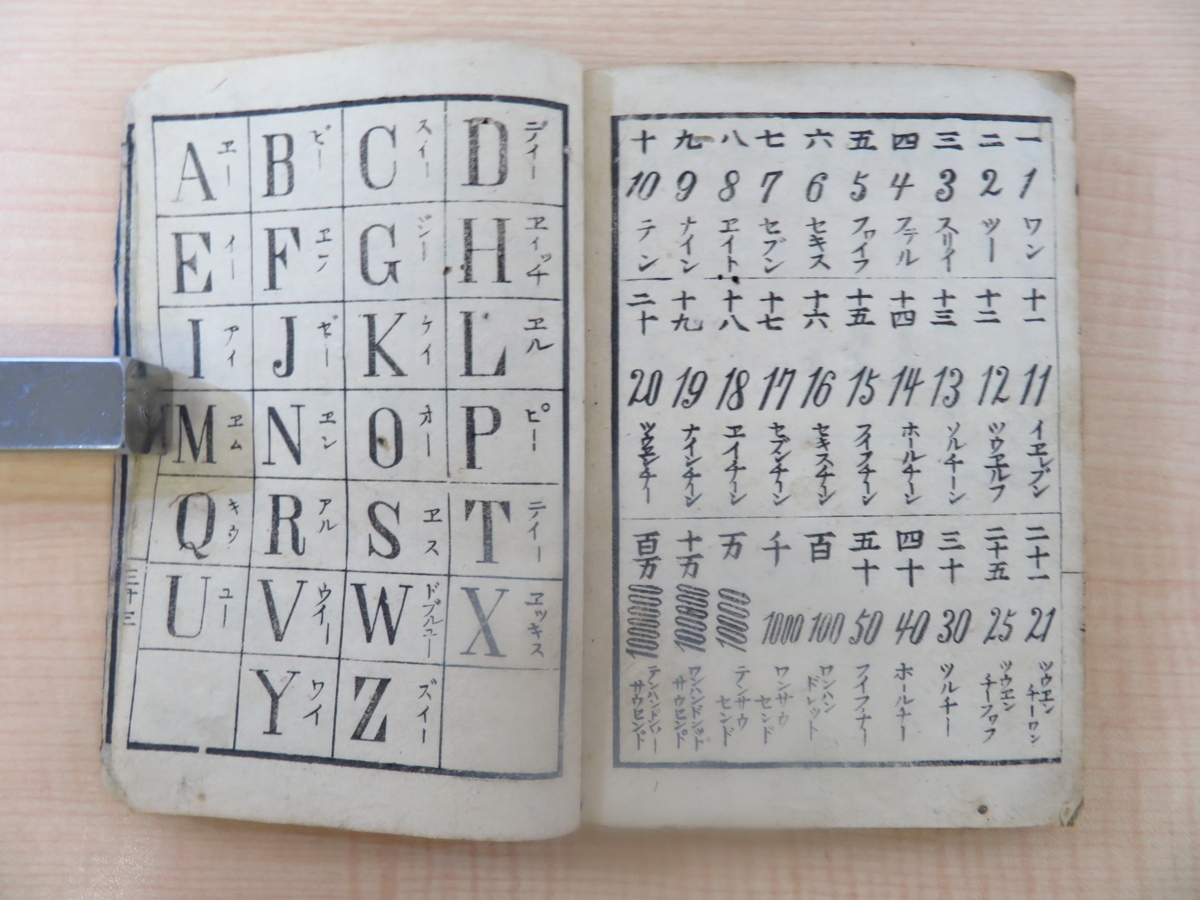 A ヱー B ビー C スイー D デイー
E イー F ヱフ G ジー H ヱイッチ
I アイ J ゼー K ケイ L ヱル
M ヱム N ヱン O オー P ピー
Q キウ R アル S ヱス T テイー
U ユー V ウイー W ドブルユー X ヱッキス
Y ワイ Z ズイー
三十三
一 二 三 四 五 六 七 八 九 十
1 2 3 4 5 6 7 8 9 10
ワン ツー スリイ フヲル フワイフ セキス セブン ヱイト ナイン テン
十一 十二 十三 十四 十五 十六 十七 十八 十九 二十
11 12 13 14 15 16 17 18 19 20
イヱレブン ツウヱルフ ソルチーン ホールチーン フイフチーン セキスチーン セブンチーン ヱイチーン ナインチーン ツウヱンチー
二十一 二十五 三十 四十 五十 百 千 万 十万 百万
21 25 30 40 50 100 1000
ツウエンチーワン ツウエンチーフワフ ツルチー ホールチー フイフチー ワンハンドレット ワンサウセンド テンサウセンド